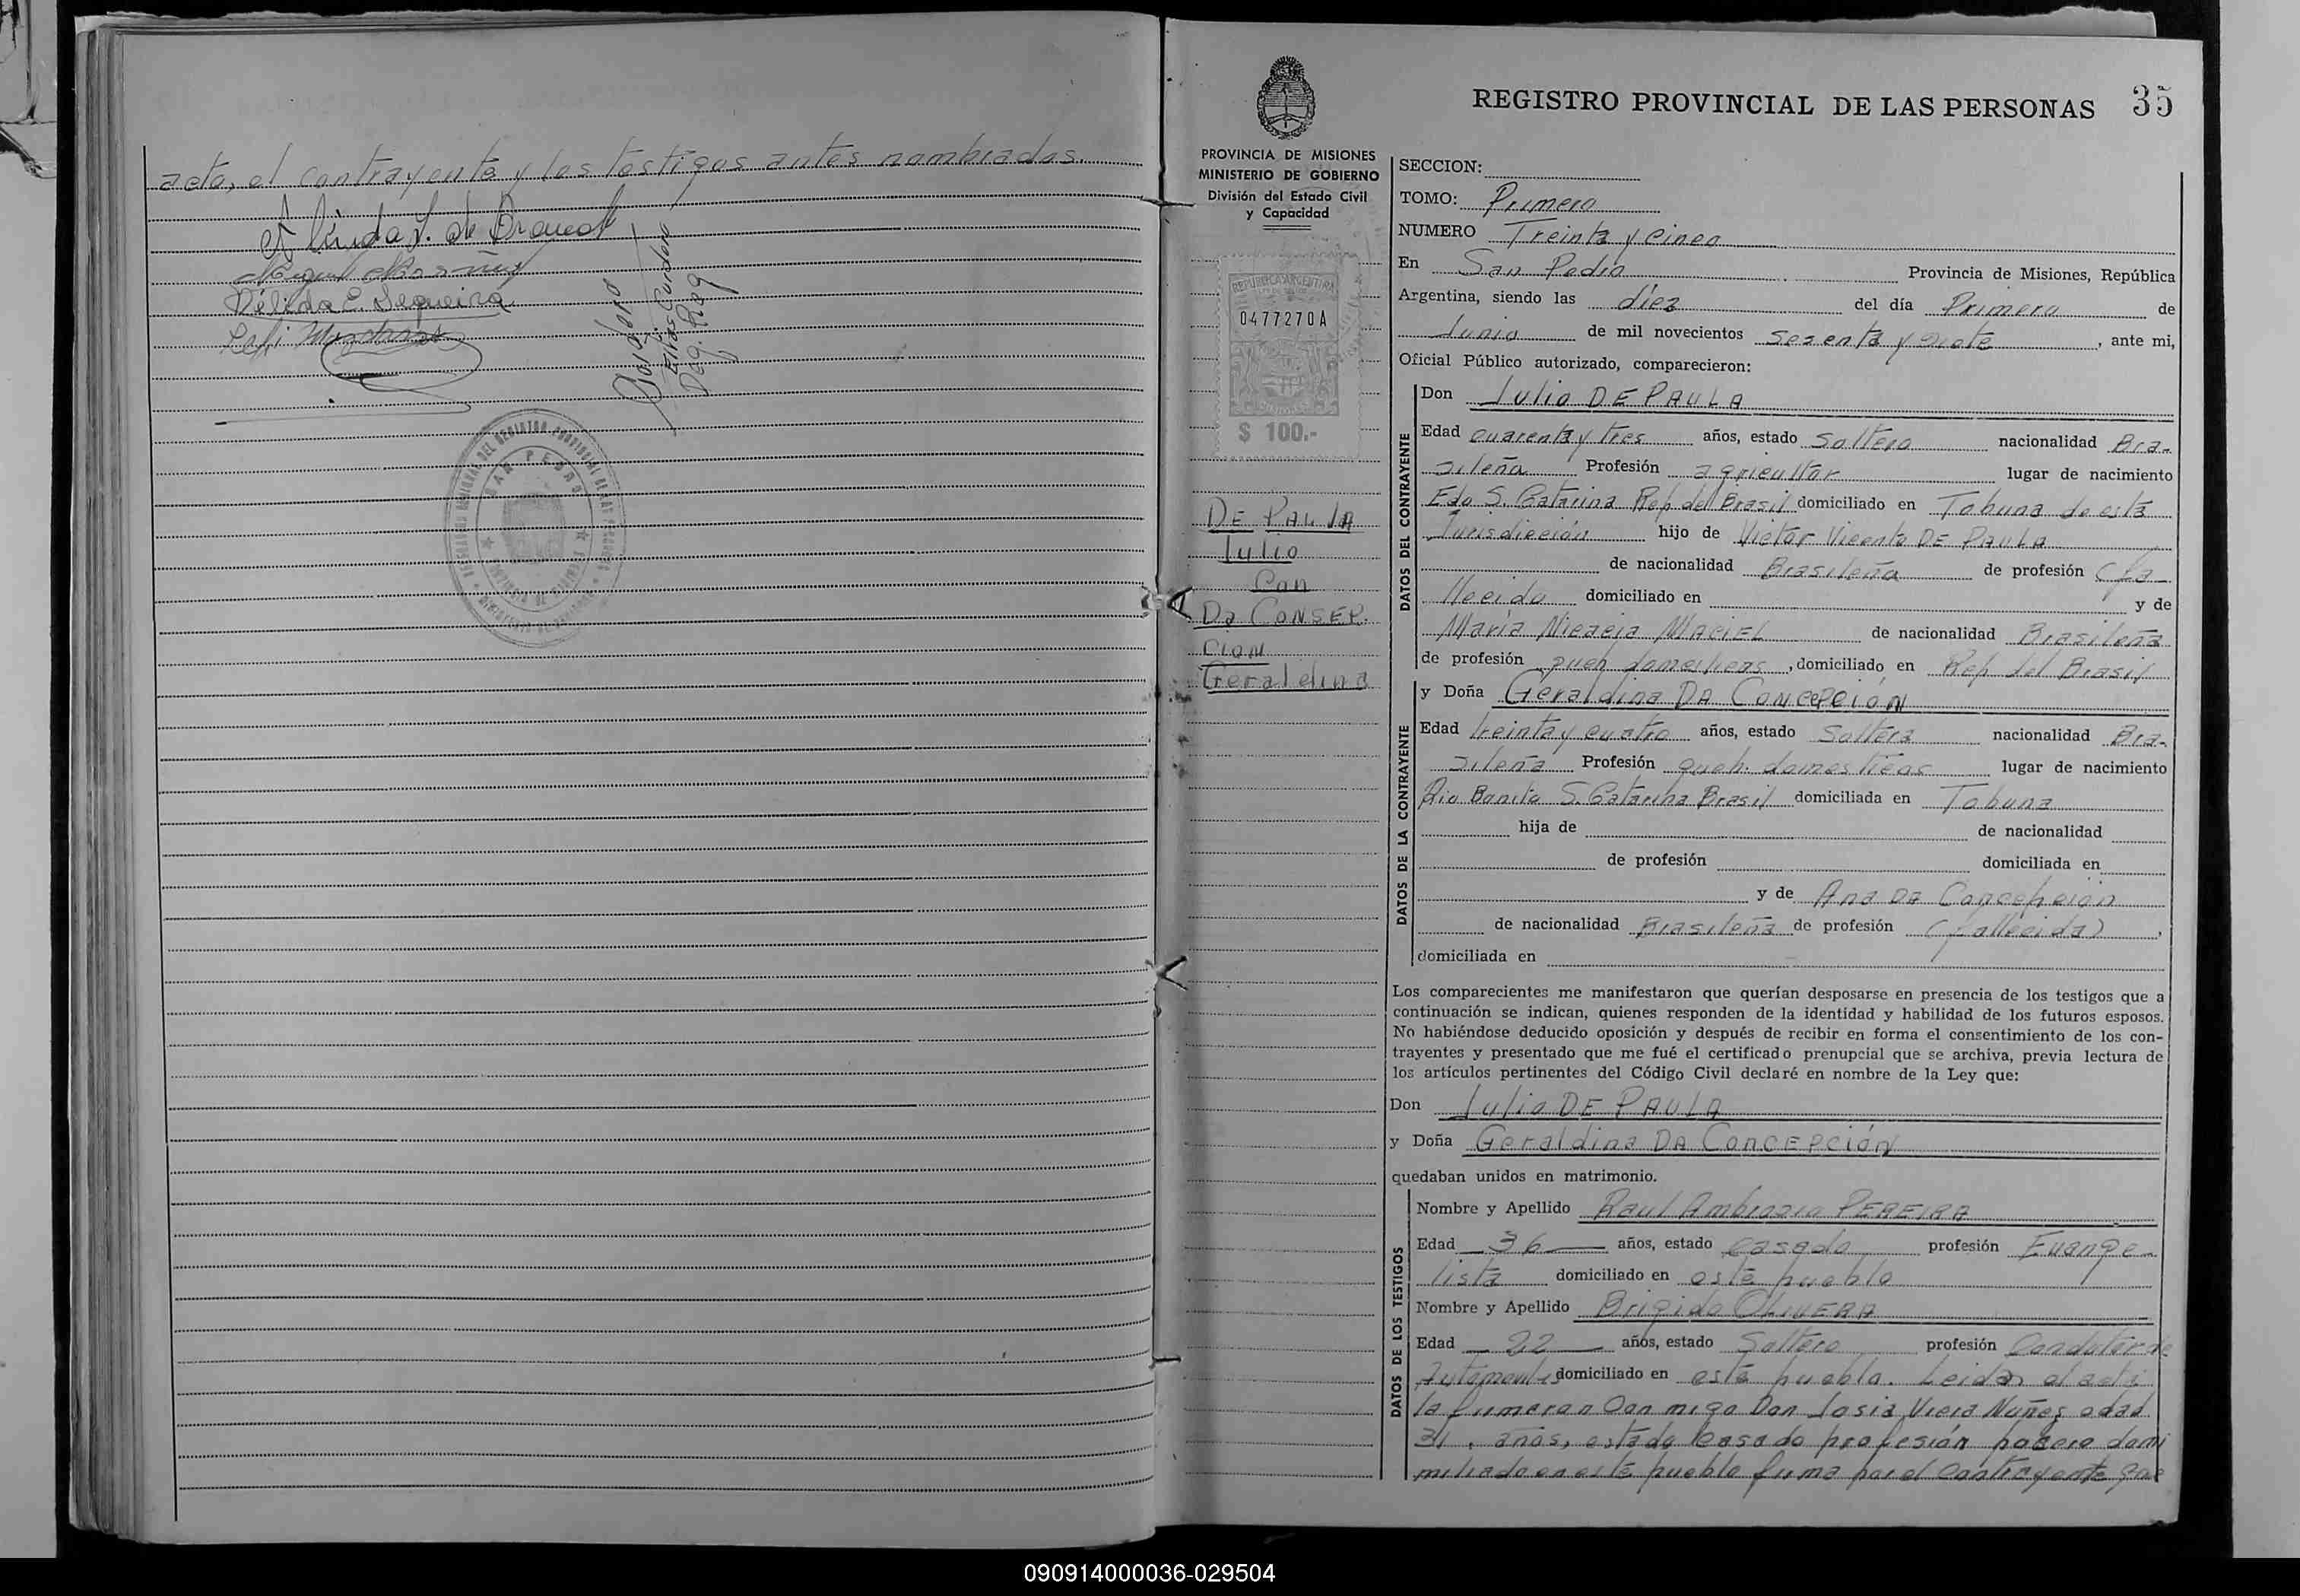 acto, el contrayente y los testigos antes nombrados.
Délida E. Sequeira
Elias Cardozo
REGISTRO PROVINCIAL DE LAS PERSONAS 35
PROVINCIA DE MISIONES
MINISTERIO DE GOBIERNO
División del Estado Civil
y Capacidad
REPUBLICA ARGENTINA
0477270A
MISIONES
$ 100.-
DE PAULA
Julio
Con
Da CONSEP.
CION
Geraldina
SECCION:
TOMO: Primero
NUMERO Treinta y cinco
En San Pedro Provincia de Misiones, República
Argentina, siendo las diez del día Primero de
Junio de mil novecientos sesenta y siete, ante mi,
Oficial Público autorizado, comparecieron:
DATOS DEL CONTRAYENTE
Don Julio DE PAULA
Edad cuarenta y tres años, estado Soltero nacionalidad Bra-
sileña Profesión agricultor lugar de nacimiento
Edo S. Catarina Rep del Brasil domiciliado en Tobuna de esta
Jurisdicción hijo de Victor Vicente DE PAULA
de nacionalidad Brasileña de profesión (fa-
llecido domiciliado en y de
Maria Nicacia MACIEL de nacionalidad Brasileña
de profesión queh domesticos, domiciliado en Rep del Brasil
DATOS DE LA CONTRAYENTE
y Doña Geraldina DA CONCEPCIÓN
Edad treinta y cuatro años, estado Soltera nacionalidad Bra-
sileña Profesión queh. domesticos lugar de nacimiento
Rio Bonito S. Catarina Brasil domiciliada en Tobuna
hija de de nacionalidad
de profesión domiciliada en
y de Ana DA Concepción
de nacionalidad Brasileña de profesión (fallecida),
domiciliada en
Los comparecientes me manifestaron que querían desposarse en presencia de los testigos que a
continuación se indican, quienes responden de la identidad y habilidad de los futuros esposos.
No habiéndose deducido oposición y después de recibir en forma el consentimiento de los con-
trayentes y presentado que me fué el certificado prenupcial que se archiva, previa lectura de
los artículos pertinentes del Código Civil declaré en nombre de la Ley que:
Don Julio DE PAULA
y Doña Geraldina DA CONCEPCIÓN
quedaban unidos en matrimonio.
DATOS DE LOS TESTIGOS
Nombre y Apellido Raul Ambrosio PEREIRA
Edad 36 años, estado casado profesión Evange-
lista domiciliado en este pueblo
Nombre y Apellido Brigido OLIVERA
Edad 22 años, estado Soltero profesión Condutor de
Automoviles domiciliado en este pueblo. Leida el acta
la firmaran Con migo Don Josia Vieia Nuñes edad
31. años, estado Casado profesión hobero domi
miliado en este pueblo firma por el Contrayente que
090914000036-029504